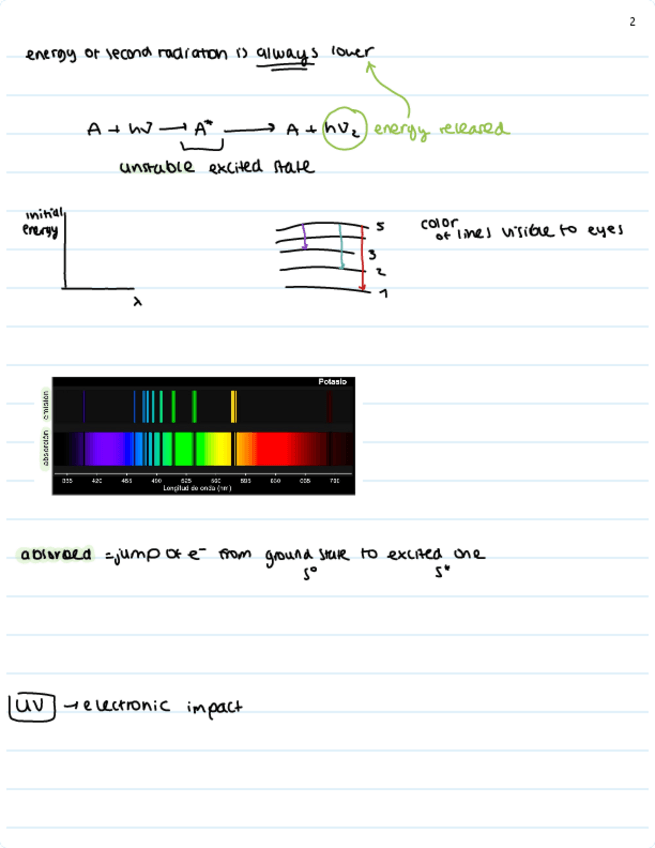 2
energy of second radiation is always lower
A + hν → A* → A + hν₂ energy released
unstable excited state
initial
energy
λ
5
3
2
1
color
of lines visible to eyes
Potasio
emisión
absorción
Longitud de onda (nm)
absorbed = jump of e⁻ from ground state to excited one
S° S*
UV → electronic impact